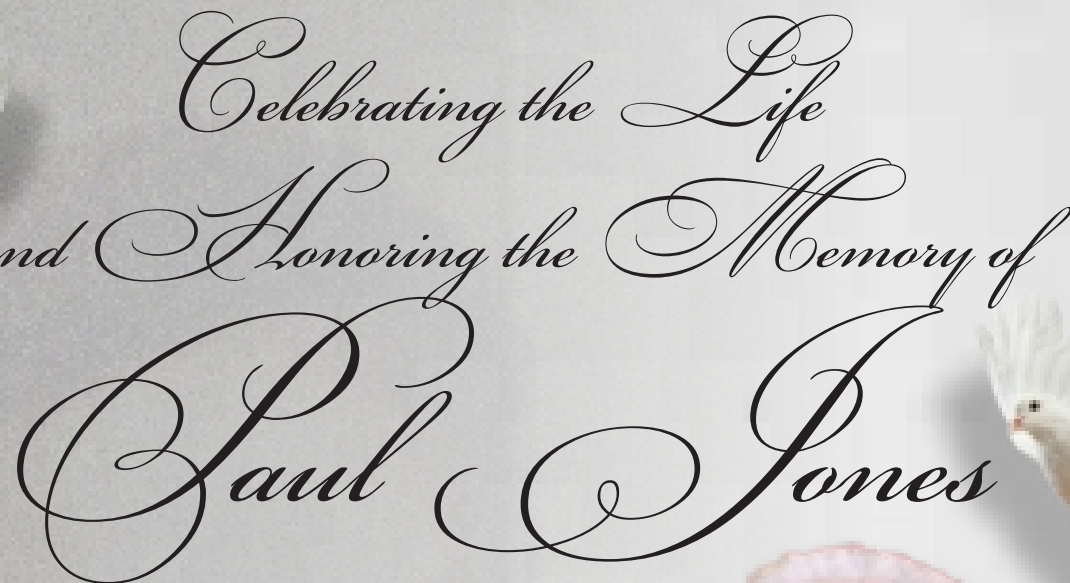 Celebrating the Life
nd Honoring the Memory of
Paul Jones